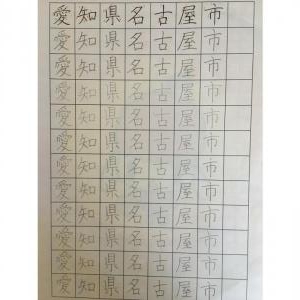 愛知県名古屋市
愛知県名古屋市
愛知県名古屋市
愛知県名古屋市
愛知県名古屋市
愛知県名古屋市
愛知県名古屋市
愛知県名古屋市
愛知県名古屋市
愛知県名古屋市
愛知県名古屋市